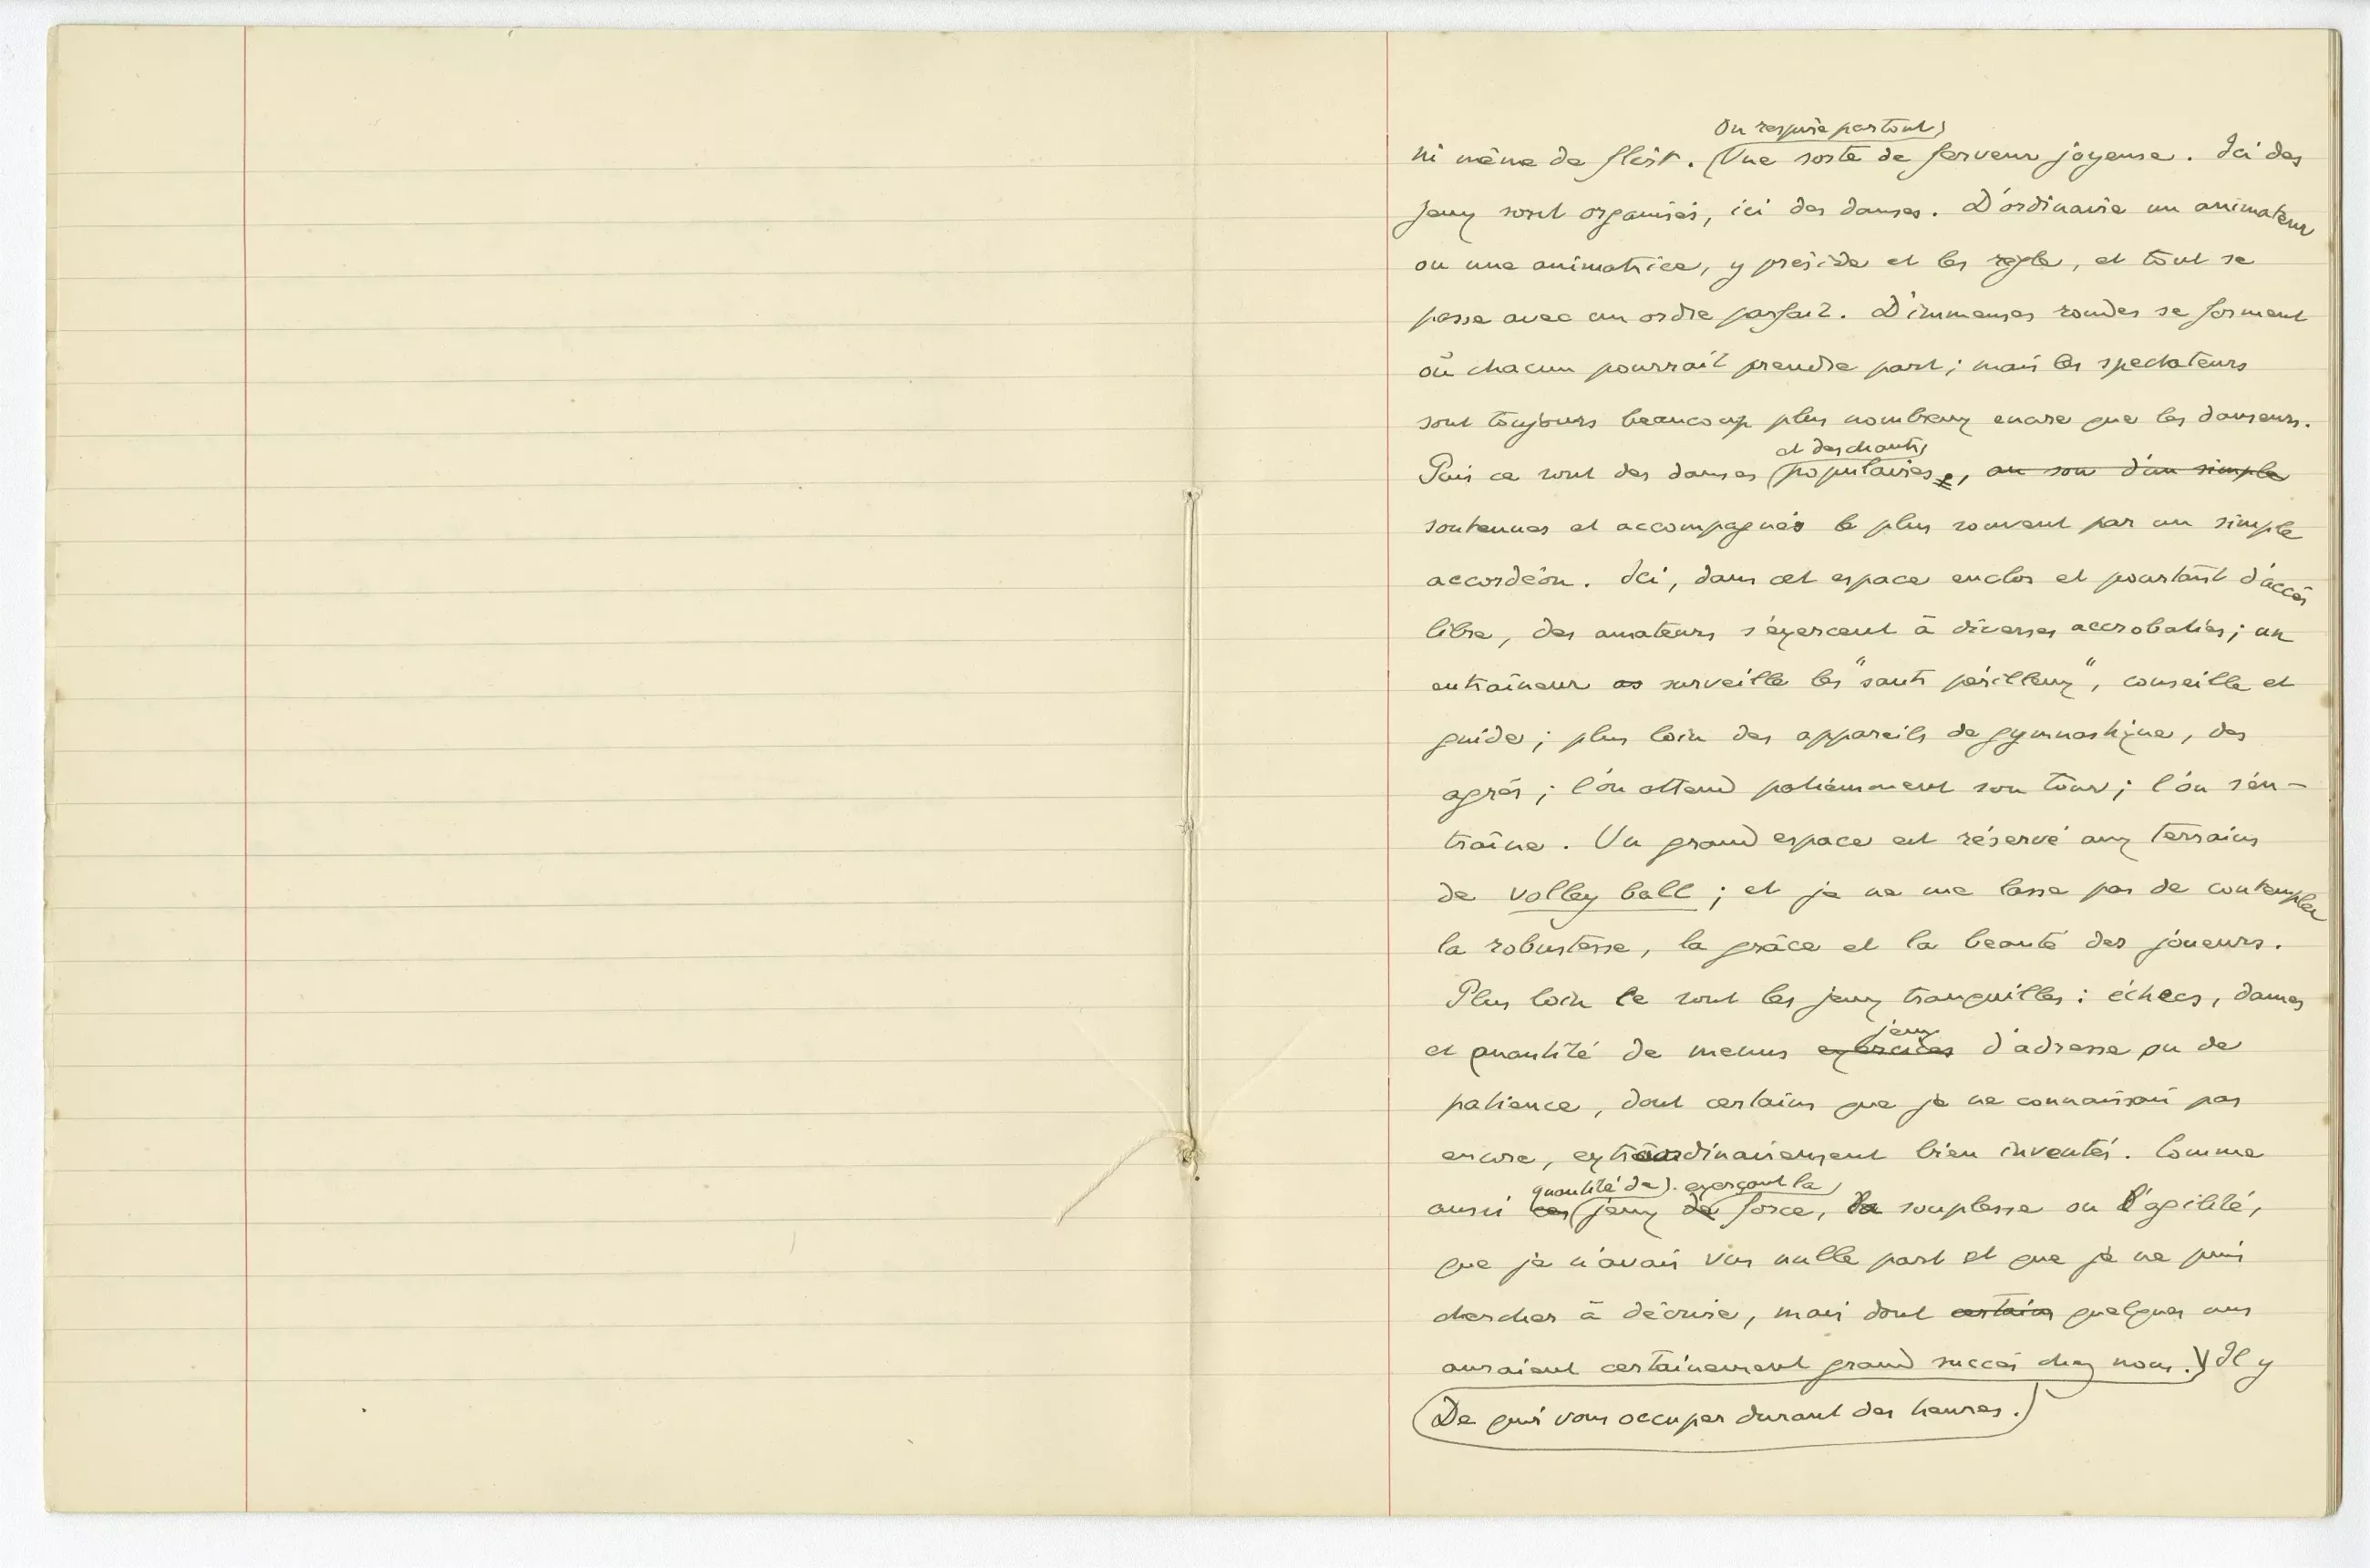 On respire partout
ni même de flirt. Une sorte de ferveur joyeuse. Ici des
jeux sont organisés, ici des danses. D'ordinaire un animateur
ou une animatrice, y préside et les règle, et tout se
passe avec un ordre parfait. D'immenses rondes se forment
où chacun pourrait prendre part ; mais les spectateurs
sont toujours beaucoup plus nombreux encore que les danseurs.
et des chants
Puis ce sont des danses populaires, au son d'un simple
soutenues et accompagnés le plus souvent par un simple
accordéon. Ici, dans cet espace enclos et pourtant d'accès
libre, des amateurs s'exercent à diverses accrobaties ; un
entraîneur surveille les "sauts périlleux", conseille et
guide ; plus loin des appareils de gymnastique, des
agrès ; l'on attend patiemment son tour ; l'on s'en-
traîne. Un grand espace est réservé aux terrains
de volley ball ; et je ne me lasse pas de contempler
la robustesse, la grâce et la beauté des joueurs.
Plus loin ce sont les jeux tranquilles : échecs, dames
jeux
et quantité de menus exercices d'adresse ou de
patience, dont certains que je ne connaissais pas
encore, extraordinairement bien inventés. Comme
quantité de exerçant la
aussi ces jeux de force, la souplesse ou l'agilité,
que je n'avais vus nulle part et que je ne puis
chercher à décrire, mais dont certains quelques uns
auraient certainement grand succès chez nous. Il y
De quoi vous occuper durant des heures.